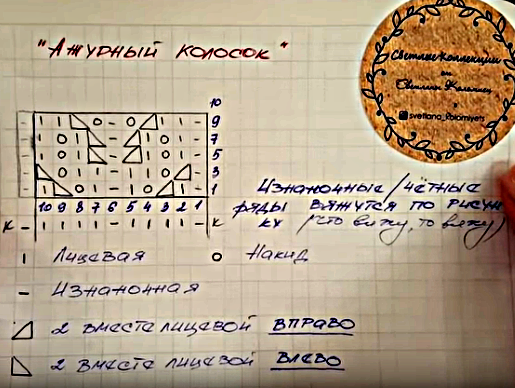 "Ажурный колосок"
СветликКоллекции
от
Светлик Коломиец
svetlana_kolomiyets
10
9
7
5
3
1
10 9 8 7 6 5 4 3 2 1
Изнаночные/чётные
ряды вяжутся по рисун
ку (что вижу, то вяжу)
К К
I Лицевая O Накид
– Изнаночная
2 вместе лицевой ВПРАВО
2 вместе лицевой ВЛЕВО